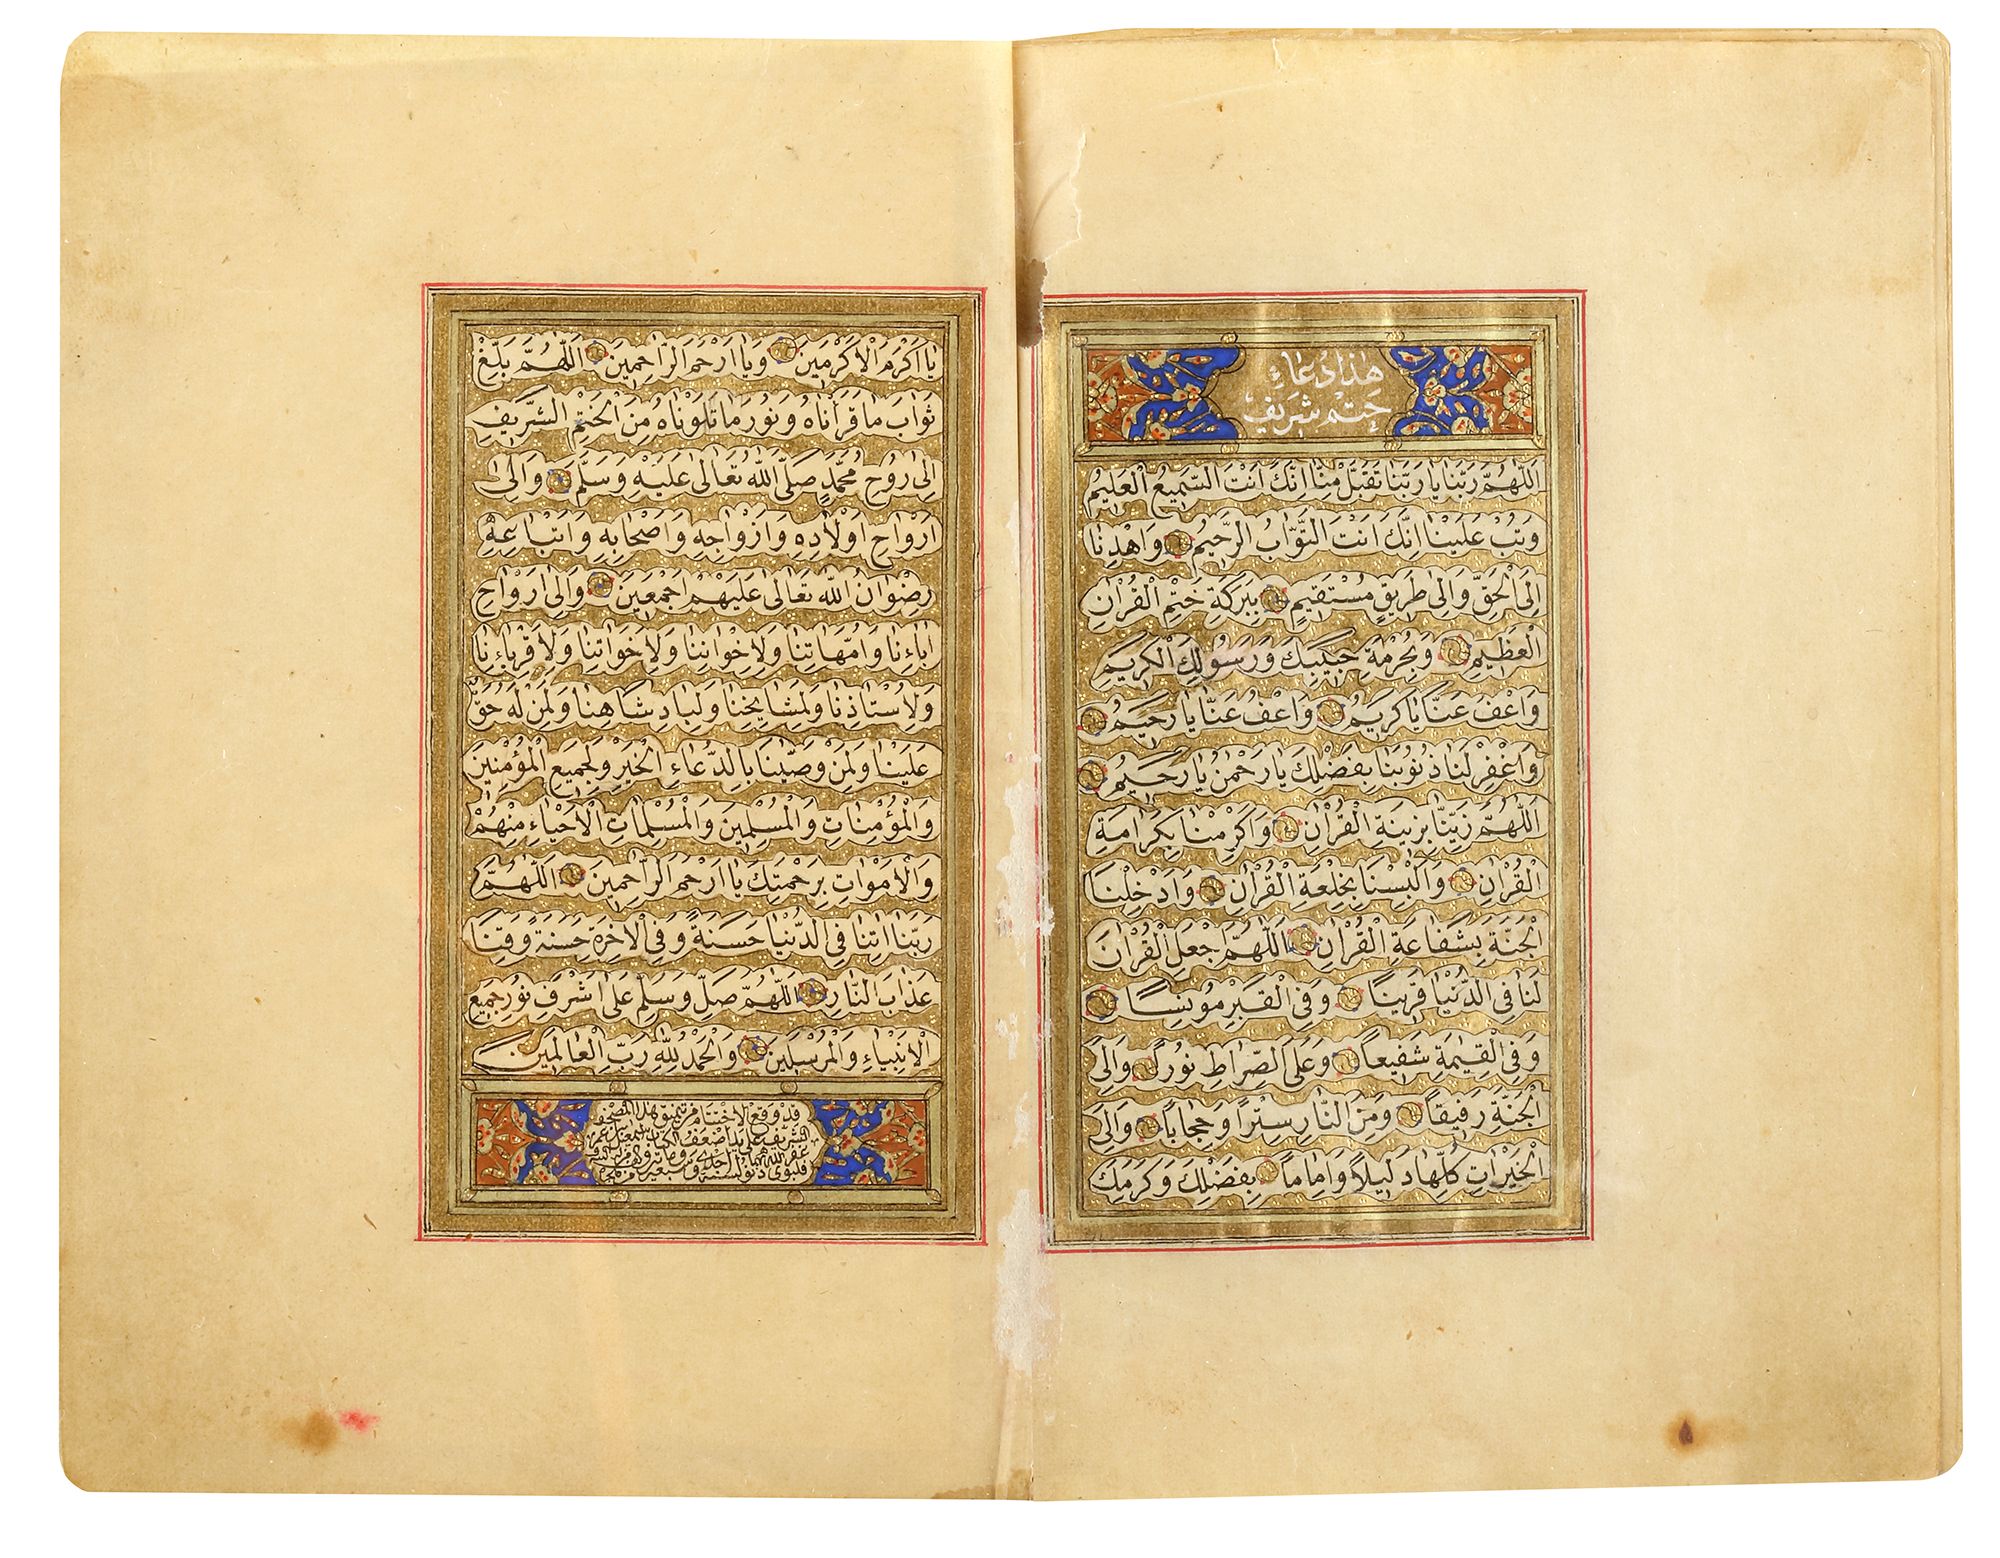 هٰذَا دُعَاءِ
خَتْمِ شَرِيفْ
اَللّٰهُمَّ رَبَّنَا يَا رَبَّنَا تَقَبَّلْ مِنَّا اِنَّكَ اَنْتَ السَّمِيعُ الْعَلِيمُ
وَتُبْ عَلَيْنَا اِنَّكَ اَنْتَ التَّوَّابُ الرَّحِيمُ وَاهْدِنَا
اِلَى الْحَقِّ وَاِلٰى طَرِيقٍ مُسْتَقِيمٍ بِبَرَكَةِ خَتْمِ الْقُرْاٰنِ
الْعَظِيمِ وَبِحُرْمَةِ حَبِيبِكَ وَرَسُولِكَ الْكَرِيمِ
وَاعْفُ عَنَّا يَا كَرِيمُ وَاعْفُ عَنَّا يَا رَحِيمُ
وَاغْفِرْ لَنَا ذُنُوبَنَا بِفَضْلِكَ يَا رَحْمٰنُ يَا رَحِيمُ
اَللّٰهُمَّ زَيِّنَّا بِزِينَةِ الْقُرْاٰنِ وَاَكْرِمْنَا بِكَرَامَةِ
الْقُرْاٰنِ وَاَلْبِسْنَا بِخِلْعَةِ الْقُرْاٰنِ وَاَدْخِلْنَا
الْجَنَّةَ بِشَفَاعَةِ الْقُرْاٰنِ اَللّٰهُمَّ اجْعَلِ الْقُرْاٰنَ
لَنَا فِي الدُّنْيَا قَرِينًا وَفِي الْقَبْرِ مُونِسًا
وَفِي الْقِيٰمَةِ شَفِيعًا وَعَلَى الصِّرَاطِ نُورًا وَاِلَى
الْجَنَّةِ رَفِيقًا وَمِنَ النَّارِ سِتْرًا وَحِجَابًا وَاِلَى
الْخَيْرَاتِ كُلِّهَا دَلِيلًا وَاِمَامًا بِفَضْلِكَ وَكَرَمِكَ
يَا اَكْرَمَ الْاَكْرَمِينَ وَيَا اَرْحَمَ الرَّاحِمِينَ اَللّٰهُمَّ بَلِّغْ
ثَوَابَ مَا قَرَأْنَاهُ وَنُورَ مَا تَلَوْنَاهُ مِنَ الْخَتْمِ الشَّرِيفِ
اِلٰى رُوحِ مُحَمَّدٍ صَلَّى اللّٰهُ تَعَالٰى عَلَيْهِ وَسَلَّمَ وَاِلٰى
اَرْوَاحِ اَوْلَادِهِ وَاَزْوَاجِهِ وَاَصْحَابِهِ وَاَتْبَاعِهِ
رِضْوَانُ اللّٰهِ تَعَالٰى عَلَيْهِمْ اَجْمَعِينَ وَاِلٰى اَرْوَاحِ
اٰبَاءِنَا وَاُمَّهَاتِنَا وَلِاِخْوَانِنَا وَلِاَخَوَاتِنَا وَلِاَقْرِبَاءِنَا
وَلِاُسْتَاذِنَا وَلِمَشَايِخِنَا وَلِبَادِشَاهِنَا وَلِمَنْ لَهُ حَقٌّ
عَلَيْنَا وَلِمَنْ وَصَّيْنَا بِالدُّعَاءِ الْخَيْرِ وَلِجَمِيعِ الْمُؤْمِنِينَ
وَالْمُؤْمِنَاتِ وَالْمُسْلِمِينَ وَالْمُسْلِمَاتِ الْاَحْيَاءِ مِنْهُمْ
وَالْاَمْوَاتِ بِرَحْمَتِكَ يَا اَرْحَمَ الرَّاحِمِينَ اَللّٰهُمَّ
رَبَّنَا اٰتِنَا فِي الدُّنْيَا حَسَنَةً وَفِي الْاٰخِرَةِ حَسَنَةً وَقِنَا
عَذَابَ النَّارِ اَللّٰهُمَّ صَلِّ وَسَلِّمْ عَلٰى اَشْرَفِ نُورِ جَمِيعِ
الْاَنْبِيَاءِ وَالْمُرْسَلِينَ وَالْحَمْدُ لِلّٰهِ رَبِّ الْعَالَمِينَ
قد وقع الاختتام من تنميق هذا المصحف
الشريف على يد اضعف الكتاب
غفر الله